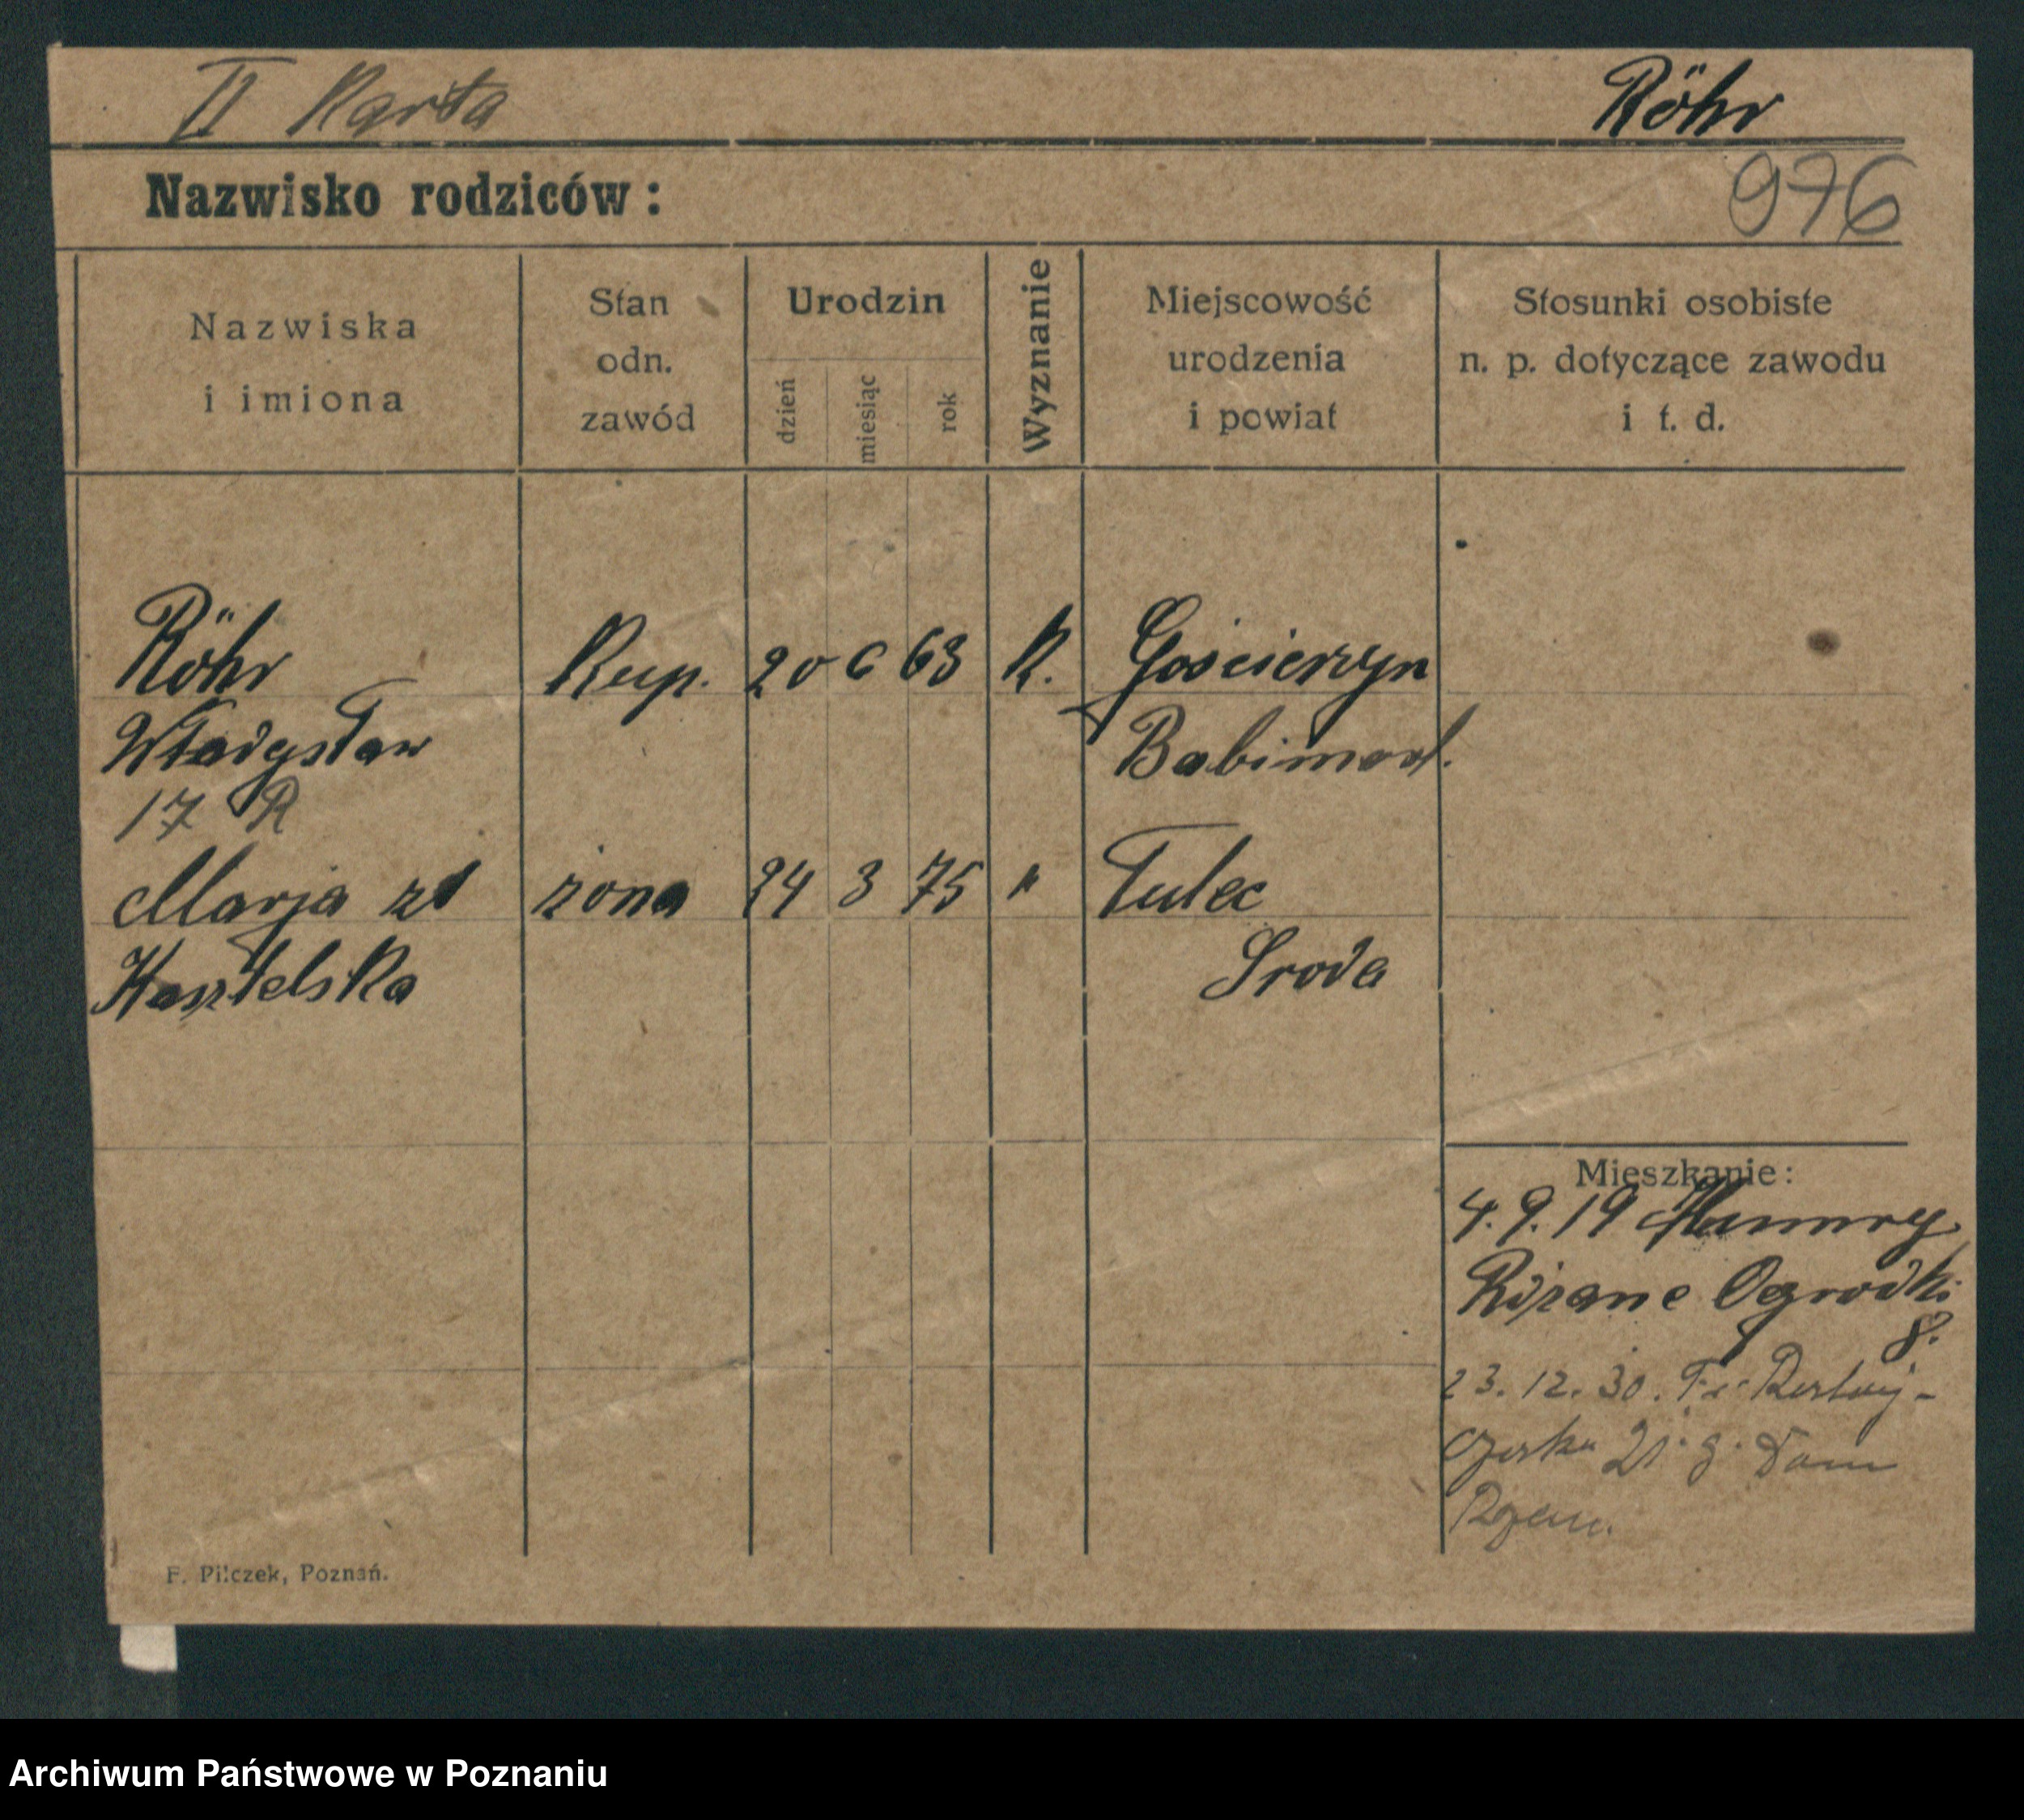 II Karta
Röhr
Nazwisko rodziców:
976
Nazwiska
i imiona
Stan
odn.
zawód
Urodzin
dzień
miesiąc
rok
Wyznanie
Miejscowość
urodzenia
i powiat
Stosunki osobiste
n. p. dotyczące zawodu
i t. d.
Röhr Kup. 20 6 63 K. Gościeszyn
Władysław Babimost.
17 R
Marja zd żona 24 3 75 " Tulec
Kasztelska Sroda
Mieszkanie:
4. 9. 19
Ogrodki
8.
23. 12. 30. Fr. Rataj-
czaka 21. g. Dom
Rzem.
F. Pilczek, Poznań.
Archiwum Państwowe w Poznaniu